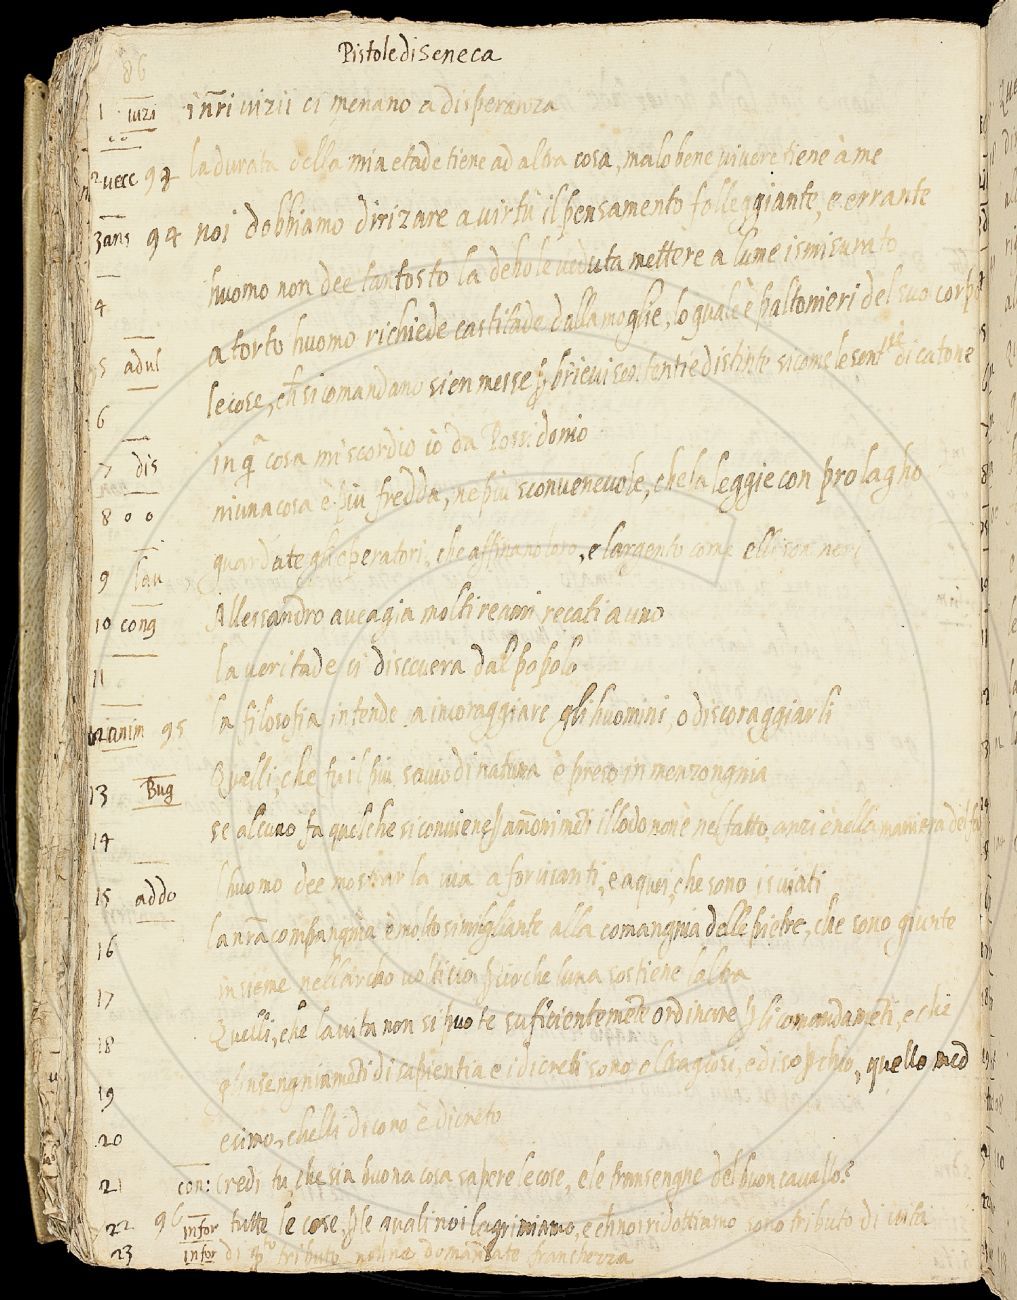 Pistole di Seneca
86
1 vizi i nr̃i vizii ci menano a disperanza
2 vecc 93 la durata della mia etade tiene ad altra cosa, ma lo bene vivere tiene à me
3 ans 94 noi dobbiamo dirizare a virtù il pensamento folleggiante, e errante
4 huomo non dee tantosto la debole veduta mettere a lume ismisurato
5 adul a torto huomo richiede castitade dalla moglie, lo quale è paltonieri del suo corpo
6 le cose, ch̃ si comandano sien messe p brievi sententie distinte sicome le sentẽtie di catone
7 dis in q̃ cosa mi scordio io da Possidonio
8 o o niuna cosa è più fredda, ne più sconvenevole, che la leggie con prolagho
9 lau guardate gli operatori, che affinano loro, e largento come elli son neri
10 cong Allessandro avea gia molti reami recati a uno
11 la veritade si discuovera dal popolo
12 anim 95 la filosofia intende a incoraggiare gli huomini, o discoraggiarli
13 Bug Quelli, che fu il più savio di natura è preso in menzongnia
14 se alcuno fa quel che si conviene il lodo non è nel fatto, anzi è nella maniera del
15 addo l huomo dee mostrar la via a forvianti, e a quei, che sono isviati
16 la nrã compangnia è molto simigliante alla comangnia delle pietre, che sono giunte
17 insieme nell archo voltitio p cio che luna sostiene laltra
18 Quelli, che la vita non si puote suficientemẽte ordinare p li comandamẽti, e che
19 gl insengniamẽti di sapientia e i dicreti sono oltragiosi, e di soperchio, quello med
20 esimo, chelli dicono è dicreto
21 con: Credi tu, che sia buona cosa sapere le cose, e le transengne del buon cavallo?
22 96 infor tutte le cose, p le quali noi lagrimiamo, e ch̃ noi ridottiamo sono tributo di vita
23 infor di q̃to tributo non ne domandate franchezza